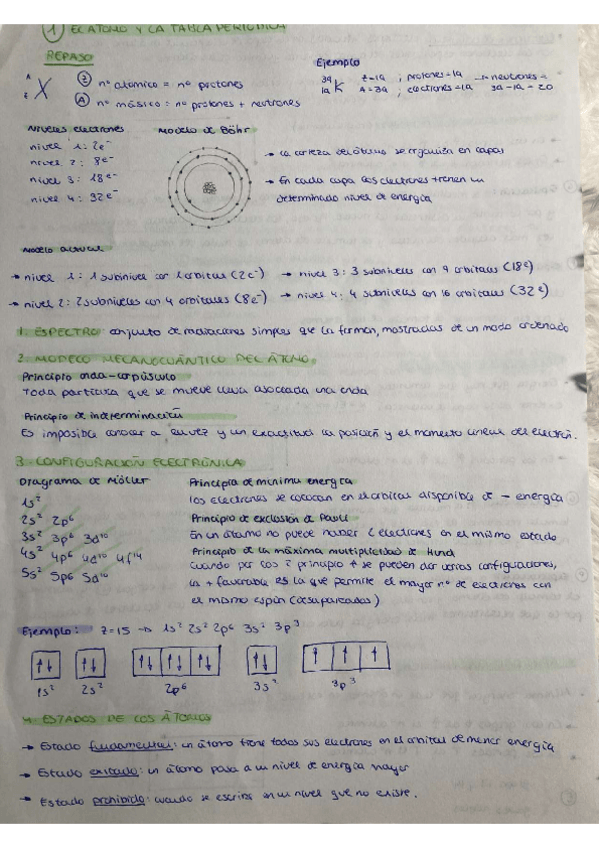 1 EL ATOMO Y LA TABLA PERIODICA
REPASO
Ejemplo
A
Z X
Z nº atómico = nº protones
A nº másico = nº protones + neutrones
39 19 K Z=19 ; protones=19 → neutrones =
A=39 ; electrones=19 39-19=20
Niveles electrones
nivel 1: 2e⁻
nivel 2: 8e⁻
nivel 3: 18e⁻
nivel 4: 32e⁻
Modelo de Böhr
→ La corteza del átomo se organiza en capas
→ En cada capa los electrones tienen un
determinado nivel de energía
Modelo actual
→ nivel 1: 1 subnivel con 1 orbital (2e⁻) → nivel 3: 3 subniveles con 9 orbitales (18e⁻)
→ nivel 2: 2 subniveles con 4 orbitales (8e⁻) → nivel 4: 4 subniveles con 16 orbitales (32e⁻)
1. ESPECTRO: conjunto de radiaciones simples que la forman, mostradas de un modo ordenado
2. MODELO MECANOCUÁNTICO DEL ÁTOMO
Principio onda-corpúsculo
Toda partícula que se mueve lleva asociada una onda
Principio de indeterminación
Es imposible conocer a la vez y con exactitud la posición y el momento lineal del electrón.
3. CONFIGURACIÓN ELECTRÓNICA
Diagrama de Möller
1s²
2s² 2p⁶
3s² 3p⁶ 3d¹⁰
4s² 4p⁶ 4d¹⁰ 4f¹⁴
5s² 5p⁶ 5d¹⁰
Principio de mínima energía
los electrones se colocan en el orbital disponible de - energía
Principio de exclusión de Pauli
En un átomo no puede haber 2 electrones en el mismo estado
Principio de la máxima multiplicidad de Hund
Cuando por los 2 principio + se pueden dar varias configuraciones,
la + favorable es la que permite el mayor nº de electrones con
el mismo espín (desapareados)
Ejemplo: Z=15 → 1s² 2s² 2p⁶ 3s² 3p³
↑↓ ↑↓ ↑↓ ↑↓ ↑↓ ↑↓ ↑ ↑ ↑
1s² 2s² 2p⁶ 3s² 3p³
4. ESTADOS DE LOS ÁTOMOS
→ Estado fundamental: un átomo tiene todos sus electrones en el orbital de menor energía
→ Estado exitado: un átomo pasa a un nivel de energía mayor
→ Estado prohibido: cuando se escribe en un nivel que no existe.